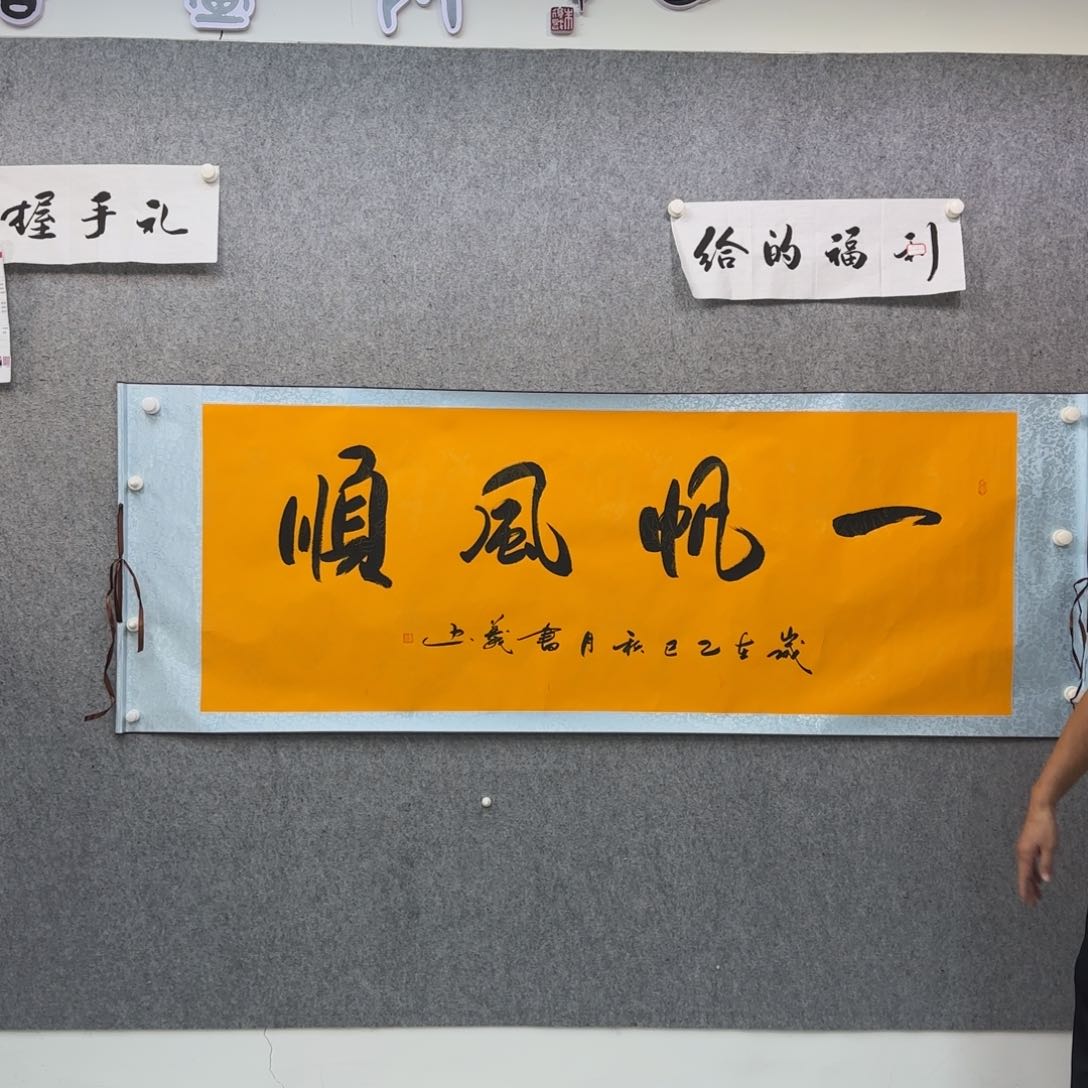 握手礼
给的福利
一帆風順
歲在乙巳秋月書義